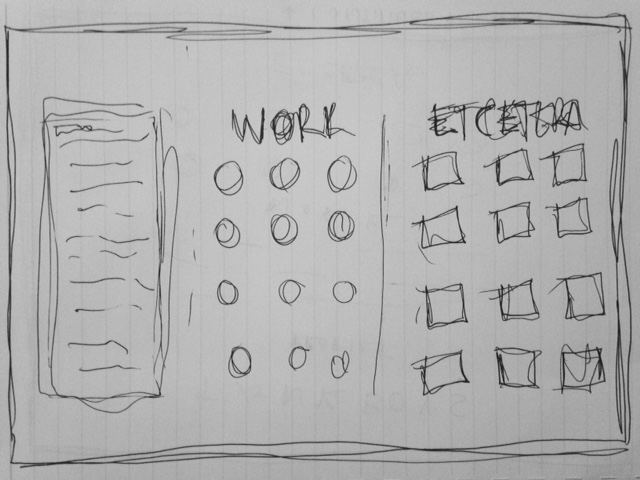 WORK
ETCETERA